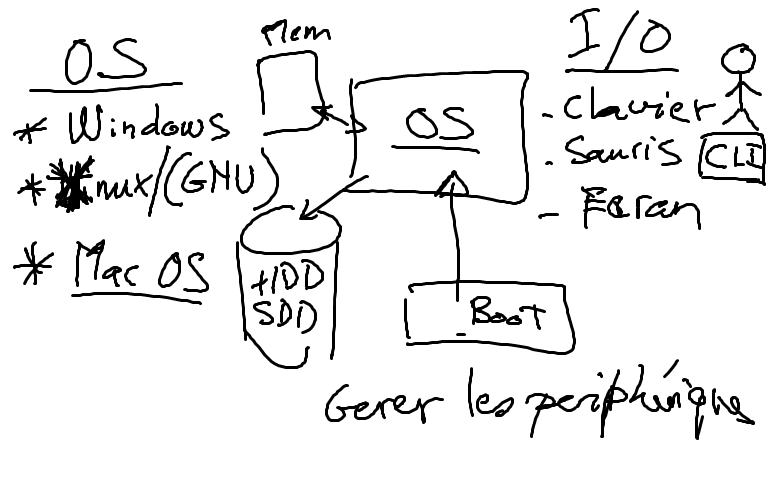 OS
* Windows
* nux/(GNU)
* Mac OS
Mem
OS
HDD
SDD
Boot
I/O
- Clavier
- Sauris
- Ecran
CLI
Gerer les periphériques